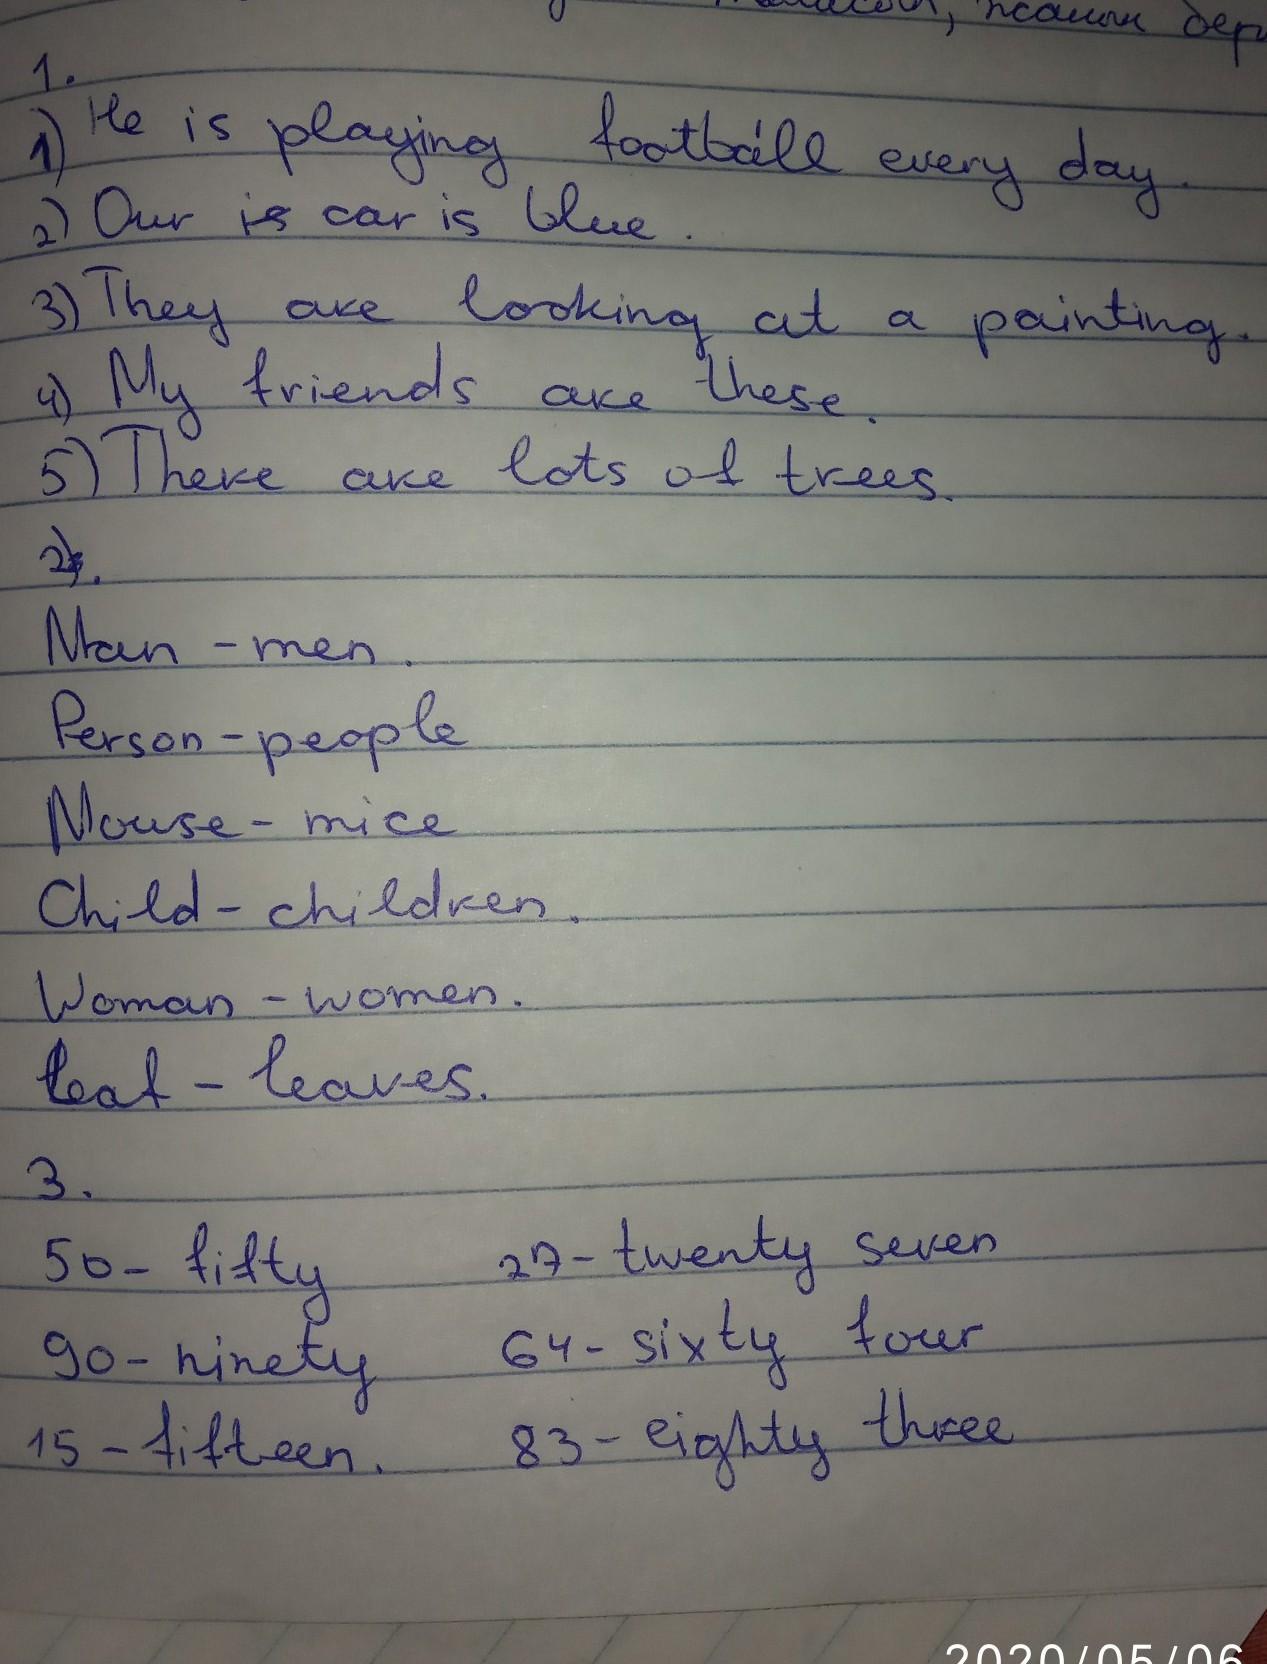 1.
1) He is playing football every day.
2) Our is car is blue.
3) They are looking at a painting.
4) My friends are these.
5) There are lots of trees.
2.
Man - men.
Person - people
Mouse - mice
Child - children.
Woman - women.
leaf - leaves.
3.
50 - fifty 27 - twenty seven
90 - ninety 64 - sixty four
15 - fifteen. 83 - eighty three
2020/05/06